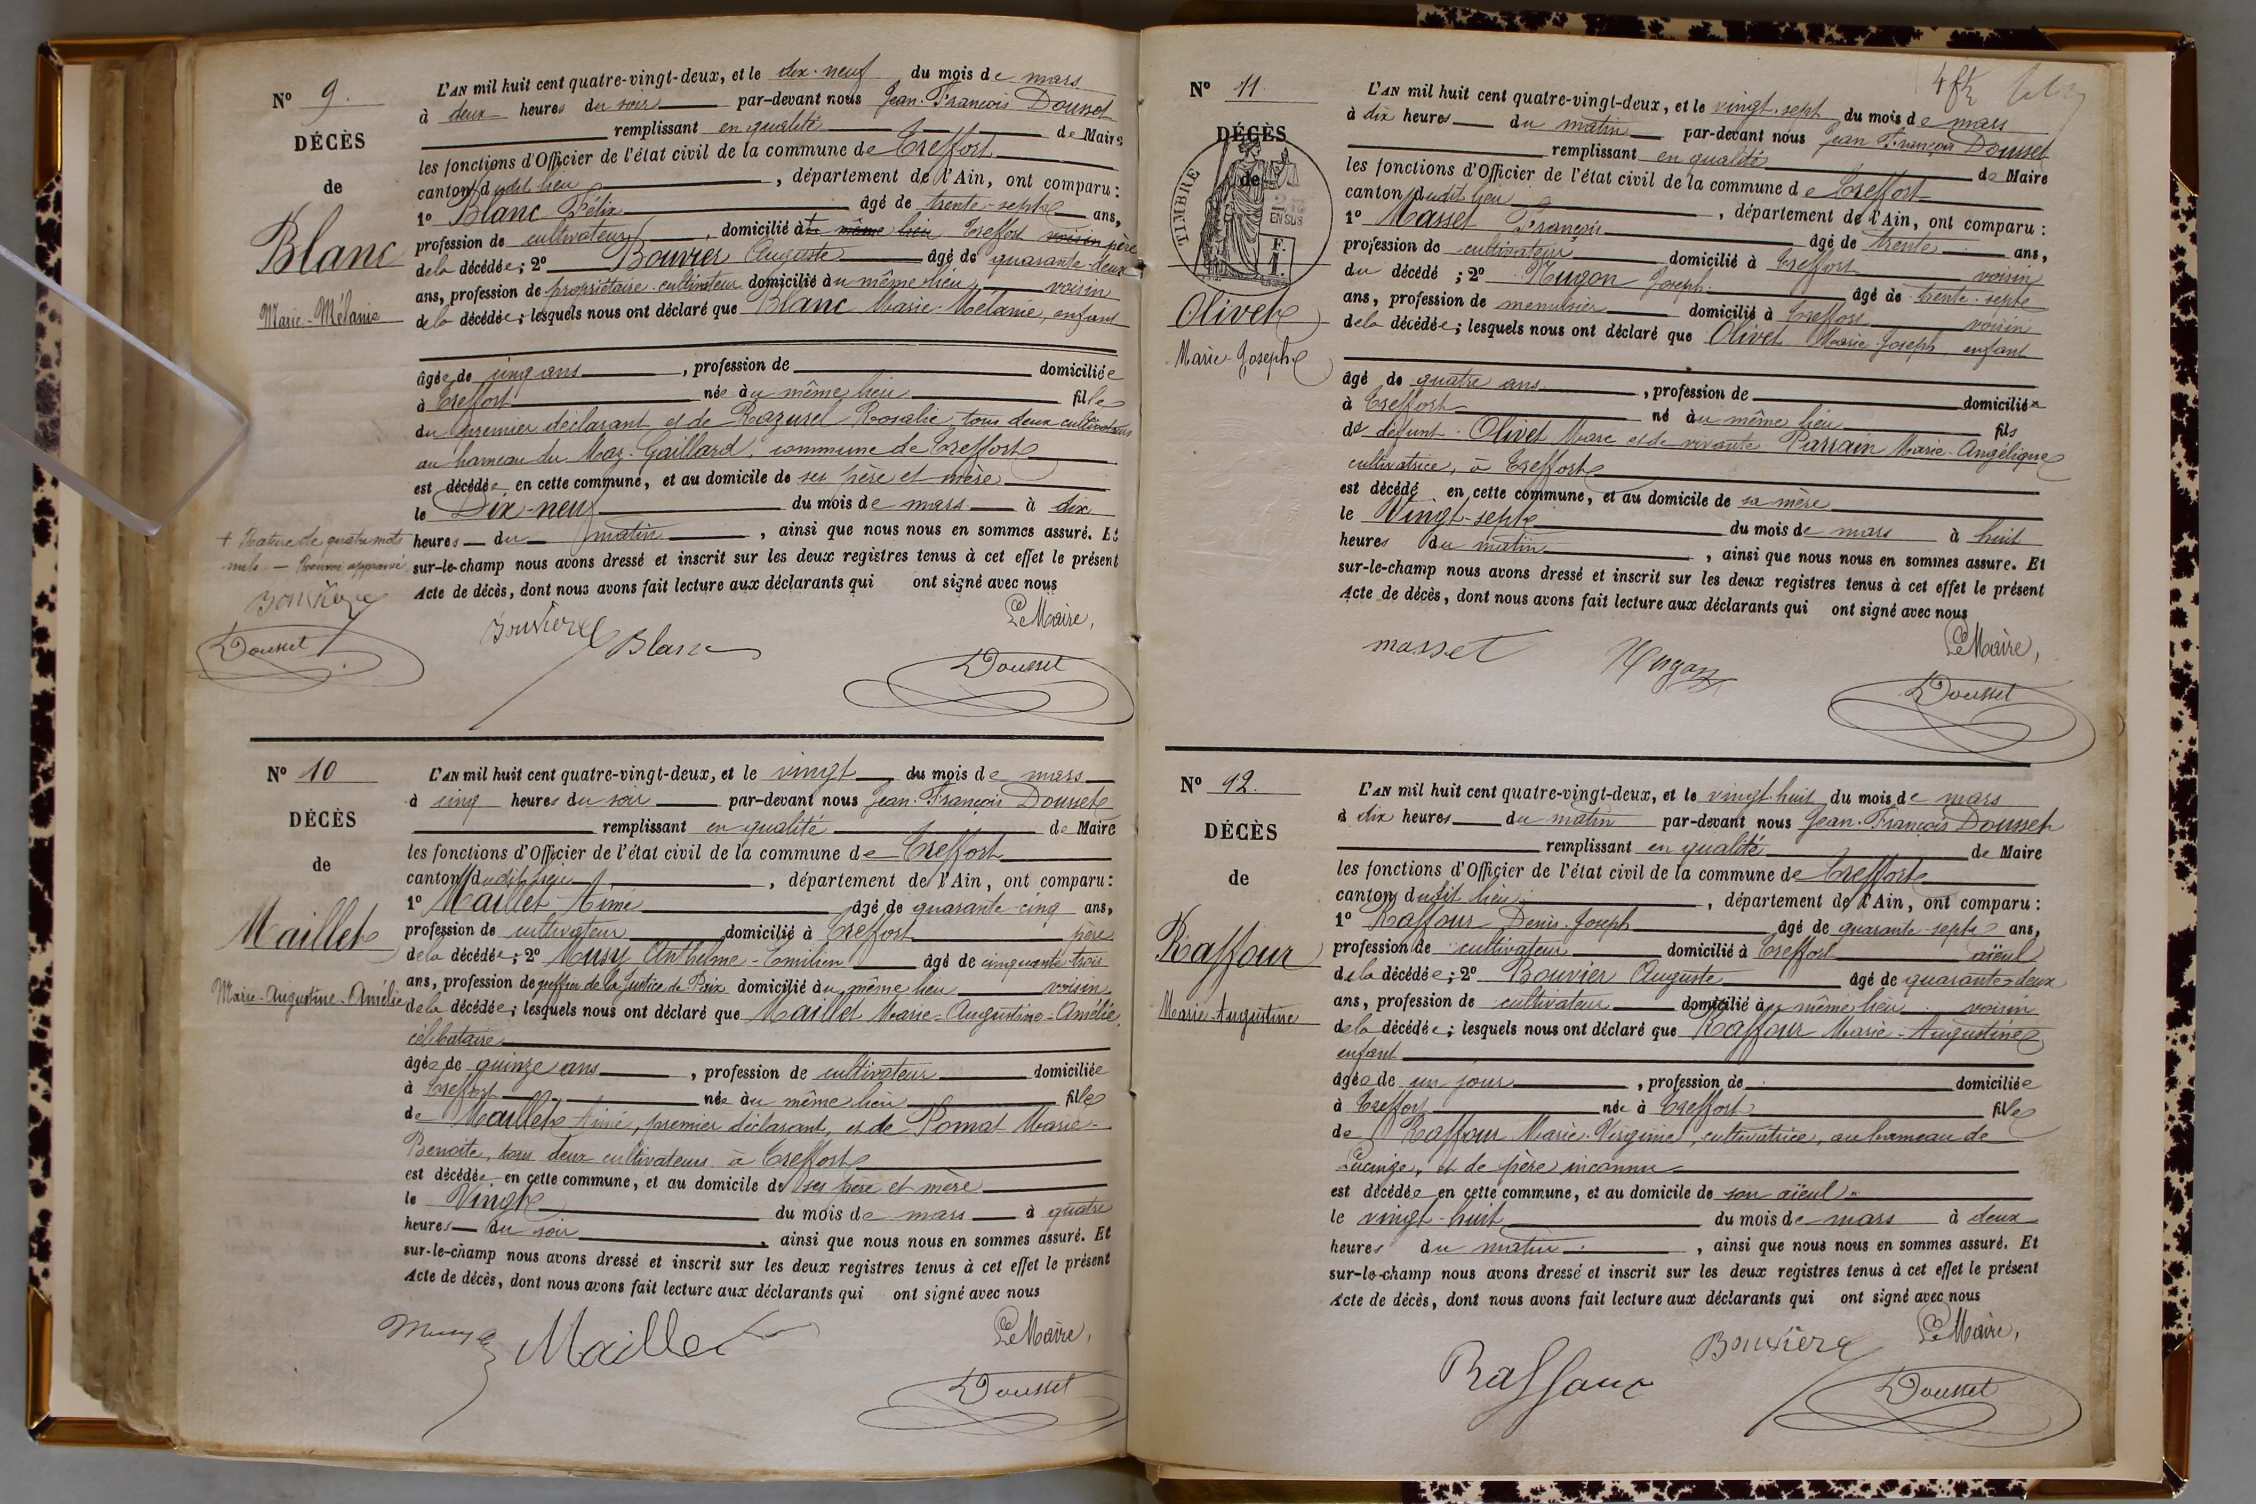 N° 9.
DÉCÈS
de
Blanc
Marie-Mélanie
L'AN mil huit cent quatre-vingt-deux, et le dix-neuf du mois de mars
à deux heures du soir par-devant nous Jean-François Dousset
remplissant en qualité de Maire
les fonctions d'Officier de l'état civil de la commune de Treffort
canton dudit lieu, département de l'Ain, ont comparu :
1° Blanc Félix âgé de trente-sept ans,
profession de cultivateur, domicilié à + le même lieu Treffort voisin père
de la décédée ; 2° Bouvier Auguste âgé de quarante-deux
ans, profession de propriétaire-cultivateur domicilié au même lieu, voisin
de la décédée ; lesquels nous ont déclaré que Blanc Marie-Mélanie, enfant
âgée de cinq ans, profession de domiciliée
à Treffort née au même lieu fille
du premier déclarant et de Razurel Rosalie, tous deux cultivateurs
au hameau du Maz-Gaillard, commune de Treffort
est décédée en cette commune, et au domicile de ses père et mère
le Dix-neuf du mois de mars à dix
heures du matin, ainsi que nous nous en sommes assuré. Et
sur-le-champ nous avons dressé et inscrit sur les deux registres tenus à cet effet le présent
Acte de décès, dont nous avons fait lecture aux déclarants qui ont signé avec nous
+ Rature de quatre mots
nuls — approuvé
Bouvier
Dousset
Le Maire,
Bouvier Blanc
Dousset
N° 10
DÉCÈS
de
Maillet
Marie-Augustine-Amélie
L'AN mil huit cent quatre-vingt-deux, et le vingt du mois de mars
à cinq heures du soir par-devant nous Jean-François Dousset
remplissant en qualité de Maire
les fonctions d'Officier de l'état civil de la commune de Treffort
canton dudit lieu, département de l'Ain, ont comparu :
1° Maillet Aimé âgé de quarante-cinq ans,
profession de cultivateur domicilié à Treffort père
de la décédée ; 2° Musy Anthelme-Emilien âgé de cinquante-trois
ans, profession de greffier de la Justice de Paix domicilié au même lieu voisin
de la décédée ; lesquels nous ont déclaré que Maillet Marie-Augustine-Amélie,
célibataire
âgée de quinze ans, profession de cultivateur domiciliée
à Treffort née au même lieu fille
de Maillet Aimé, premier déclarant, et de Pomat Marie-
Benoîte, tous deux cultivateurs à Treffort
est décédée en cette commune, et au domicile de ses père et mère
le Vingt du mois de mars à quatre
heures du soir, ainsi que nous nous en sommes assuré. Et
sur-le-champ nous avons dressé et inscrit sur les deux registres tenus à cet effet le présent
Acte de décès, dont nous avons fait lecture aux déclarants qui ont signé avec nous
Le Maire,
Musy Maillet
Dousset
N° 11.
DÉCÈS
de
TIMBRE
2/10
EN SUS
F.
1.
Olivet
Marie-Joseph
L'AN mil huit cent quatre-vingt-deux, et le vingt-sept du mois de mars
à dix heures du matin par-devant nous Jean-François Dousset
remplissant en qualité de Maire
les fonctions d'Officier de l'état civil de la commune de Treffort
canton dudit lieu, département de l'Ain, ont comparu :
1° Masset François âgé de trente ans,
profession de cultivateur domicilié à Treffort voisin
du décédé ; 2° Hugon Joseph âgé de trente-sept
ans, profession de menuisier domicilié à Treffort voisin
de la décédée ; lesquels nous ont déclaré que Olivet Marie-Joseph, enfant
âgé de quatre ans, profession de domicilié
à Treffort né au même lieu fils
de défunt Olivet Marc et de vivante Parrain Marie-Angélique
cultivatrice, à Treffort
est décédé en cette commune, et au domicile de sa mère
le Vingt-sept du mois de mars à huit
heures du matin, ainsi que nous nous en sommes assuré. Et
sur-le-champ nous avons dressé et inscrit sur les deux registres tenus à cet effet le présent
Acte de décès, dont nous avons fait lecture aux déclarants qui ont signé avec nous
Le Maire,
masset Hugon
Dousset
N° 12.
DÉCÈS
de
Raffour
Marie-Augustine
L'AN mil huit cent quatre-vingt-deux, et le vingt-huit du mois de mars
à dix heures du matin par-devant nous Jean-François Dousset
remplissant en qualité de Maire
les fonctions d'Officier de l'état civil de la commune de Treffort
canton dudit lieu, département de l'Ain, ont comparu :
1° Raffour Denis-Joseph âgé de quarante-sept ans,
profession de cultivateur domicilié à Treffort aïeul
de la décédée ; 2° Bouvier Auguste âgé de quarante-deux
ans, profession de cultivateur domicilié au même lieu voisin
de la décédée ; lesquels nous ont déclaré que Raffour Marie-Augustine
enfant
âgée de un jour, profession de domiciliée
à Treffort née à Treffort fille
de Raffour Marie-Virginie, cultivatrice, au hameau de
Lucinge, et de père inconnu
est décédée en cette commune, et au domicile de son aïeul
le vingt-huit du mois de mars à deux
heures du matin, ainsi que nous nous en sommes assuré. Et
sur-le-champ nous avons dressé et inscrit sur les deux registres tenus à cet effet le présent
Acte de décès, dont nous avons fait lecture aux déclarants qui ont signé avec nous
Le Maire,
Raffour Bouvier
Dousset